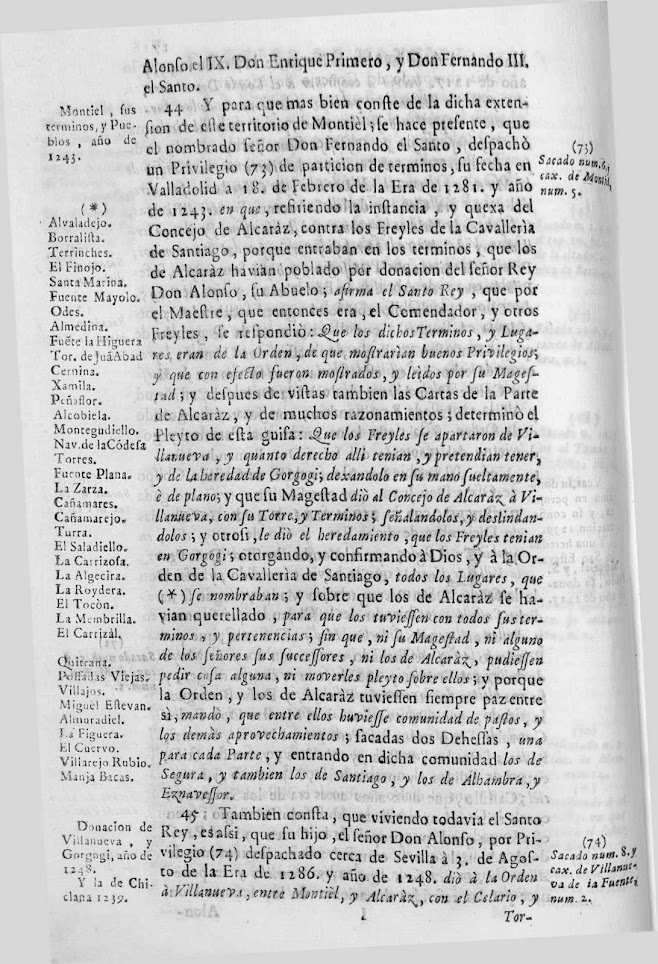 Alonso el IX. Don Enrique Primero, y Don Fernando III.
el Santo.
44 Y para que mas bien conste de la dicha exten-
sion de este territorio de Montièl; se hace presente, que
el nombrado señor Don Fernando el Santo, despachò
un Privilegio (73) de particion de terminos, su fecha en
Valladolid a 18. de Febrero de la Era de 1281. y año
de 1243. en que, refitiendo la instancia, y quexa del
Concejo de Alcaràz, contra los Freyles de la Cavallerìa
de Santiago, porque entraban en los terminos, que los
de Alcaràz havian poblado por donacion del señor Rey
Don Alonso, su Abuelo; afirma el Santo Rey, que por
el Maestre, que entonces era, el Comendador, y otros
Freyles, se respondiò: Que los dichos Terminos, y Luga-
res eran de la Orden, de que mostrarian buenos Privilegios;
y que con efecto fueron mostrados, y leìdos por su Mages-
tad; y despues de vistas tambien las Cartas de la Parte
de Alcaràz, y de muchos razonamientos; determinò el
Pleyto de esta guisa: Que los Freyles se apartaron de Vi-
llanueva, y quanto derecho alli tenian, y pretendian tener,
y de la heredad de Gorgogi; dexandolo en su mano sueltamente,
è de plano; y que su Magestad diò al Concejo de Alcaràz à Vi-
llanueva, con su Torre, y Terminos; señalandolos, y deslindan-
dolos; y otrosi, le diò el heredamiento, que los Freyles tenian
en Gorgogi; otorgando, y confirmando à Dios, y à la Or-
den de la Cavallerìa de Santiago, todos los Lugares, que
(*) se nombraban; y sobre que los de Alcaràz se ha-
vian querellado, para que los tuviessen con todos sus ter-
minos, y pertenencias; sin que, ni su Magestad, ni alguno
de los señores sus successores, ni los de Alcaràz, pudiessen
pedir cosa alguna, ni moverles pleyto sobre ellos; y porque
la Orden, y los de Alcaràz tuviessen siempre paz entre
sì, mandò, que entre ellos huviesse comunidad de pastos, y
los demàs aprovechamientos; sacadas dos Dehessas, una
para cada Parte, y entrando en dicha comunidad los de
Segura, y tambien los de Santiago, y los de Alhambra, y
Eznavessor.
45 Tambien consta, que viviendo todavia el Santo
Rey, es assi, que su hijo, el señor Don Alonso, por Pri-
vilegio (74) despachado cerca de Sevilla à 3. de Agos-
to de la Era de 1286. y año de 1248. diò à la Orden
à Villanueva, entre Montiel, y Alcaràz, con el Celario, y
I
Tor-
Montiel, sus
terminos, y Pue-
blos, año de
1243.
(*)
Alvaladejo.
Borralista.
Terrinches.
El Finojo.
Santa Marina.
Fuente Mayolo.
Odes.
Almedina.
Fuẽte la Higuera
Tor. de JuãAbad
Cernina.
Xamila.
Peñaflor.
Alcobiela.
Montegudiello.
Nav. de la Cõdesa
Torres.
Fuente Plana.
La Zarza.
Cañamares.
Cañamarejo.
Turra.
El Saladiello.
La Carrizosa.
La Algecira.
La Roydera.
El Tocòn.
La Membrilla.
El Carrizàl.
Quintana.
Possadas Viejas.
Villajos.
Miguel Estevan.
Almuradiel.
La Figuera.
El Cuervo.
Villarejo Rubio.
Manja Bacas.
Donacion de
Villanueva, y
Gorgogi, año de
1248.
Y la de Chi-
clana 1239.
(73)
Sacado num. 6.
cax. de Montiel,
num. 5.
(74)
Sacado num. 8. y
cax. de Villanue-
va de la Fuente,
num. 2.